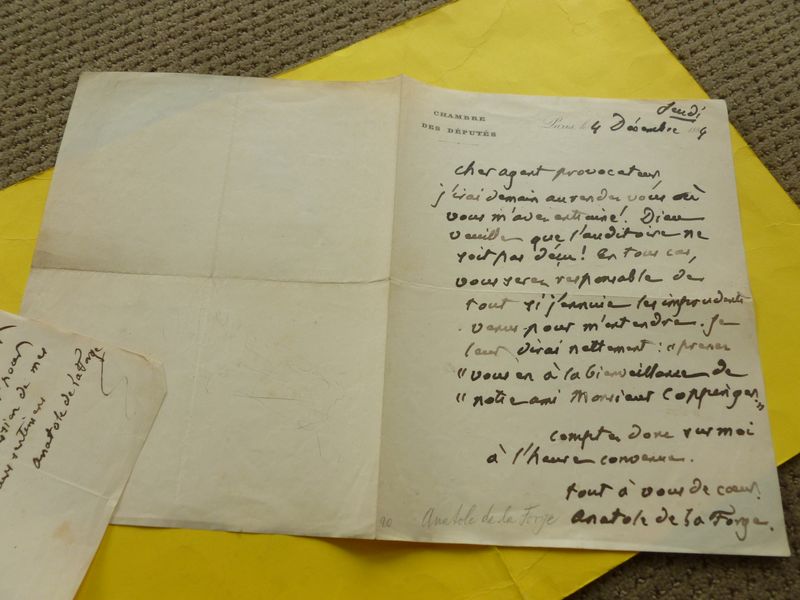 CHAMBRE
DES DÉPUTÉS
Jeudi
Paris, le 4 Décembre 1889
cher agent provocateur,
j'irai demain au rendez vous où
vous m'avez entrainé! Dieu
veuille que l'auditoire ne
soit pas déçu! En tous cas,
vous serez responsable de
tout si j'ennuie les imprudents
venus pour m'entendre. Je
leur dirai nettement: "prenez
"vous en à la bienveillance de
"notre ami Monsieur Coppenger."
comptez donc sur moi
à l'heure convenue.
tout à vous de cœur.
Anatole de la Forge.
90 Anatole de la Forge
pour
de mes
sentimens
Anatole de la Forge